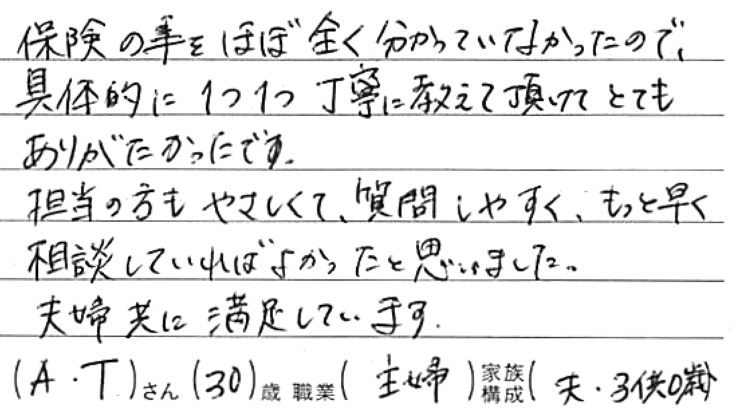 保険の事をほぼ全く分かっていなかったので、
具体的に1つ1つ丁寧に教えて頂けてとても
ありがたかったです。
担当の方もやさしくて、質問しやすく、もっと早く
相談していればよかったと思いました。
夫婦共に満足しています。
(A・T)さん(30)歳 職業(主婦)家族構成(夫・子供0歳